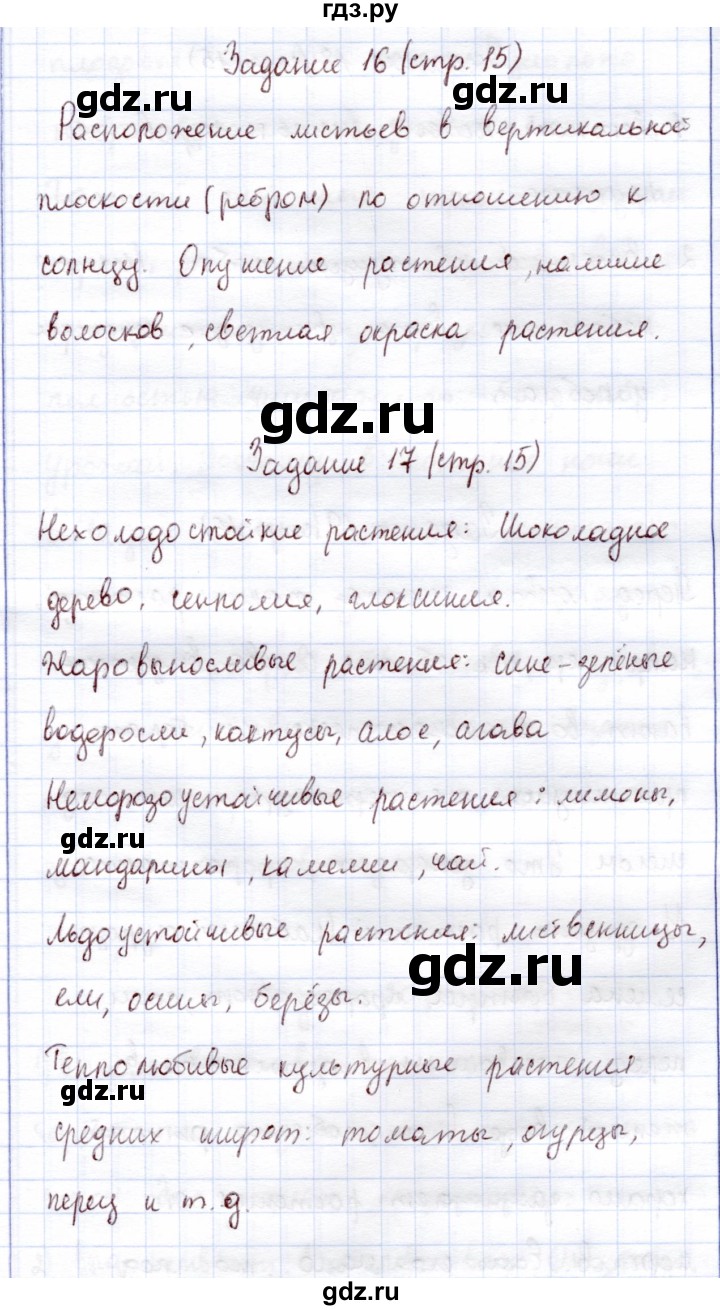 гдз.ру
Задание 16 (стр. 15)
gdz.ru gdz.ru
Расположение листьев в вертикальной
плоскости (ребром) по отношению к
солнцу. Опушение растения, наличие
волосков, светлая окраска растения.
gdz.ru
Задание 17 (стр. 15)
Нехолодостойкие растения: Шоколадное
дерево, сенполия, глоксиния.
Жаровыносливые растения: сине-зелёные
водоросли, кактусы, алое, агава
Неморозоустойчивые растения: лимоны,
gdz.ru
мандарины, камелии, чай.
Льдоустойчивые растения: лиственницы,
gdz.ru
ели, осины, берёзы.
Теплолюбивые культурные растения
gdz.ru
средних широт: томаты, огурцы,
перец и т.д.
gdz.ru